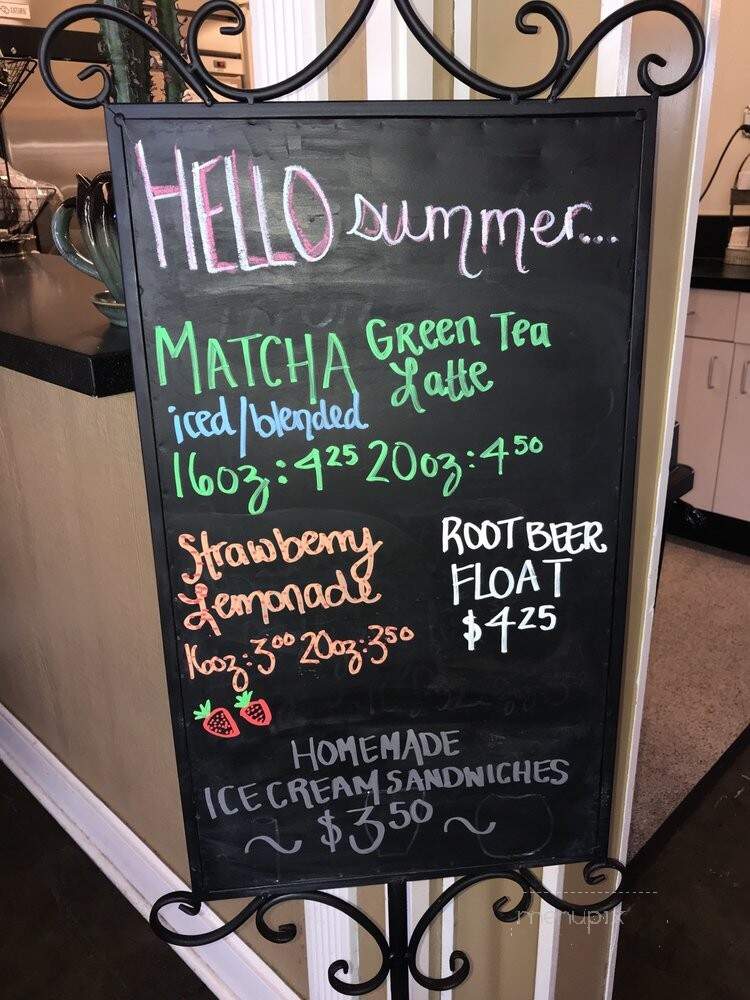 HELLO summer...
MATCHA Green Tea Latte
iced/blended
16oz: 4 25 20oz: 4 50
Strawberry
Lemonade
16oz: 3 00 20oz: 3 50
ROOT BEER
FLOAT
$4 25
HOMEMADE
ICE CREAM SANDWICHES
~ $3 50 ~
menupix